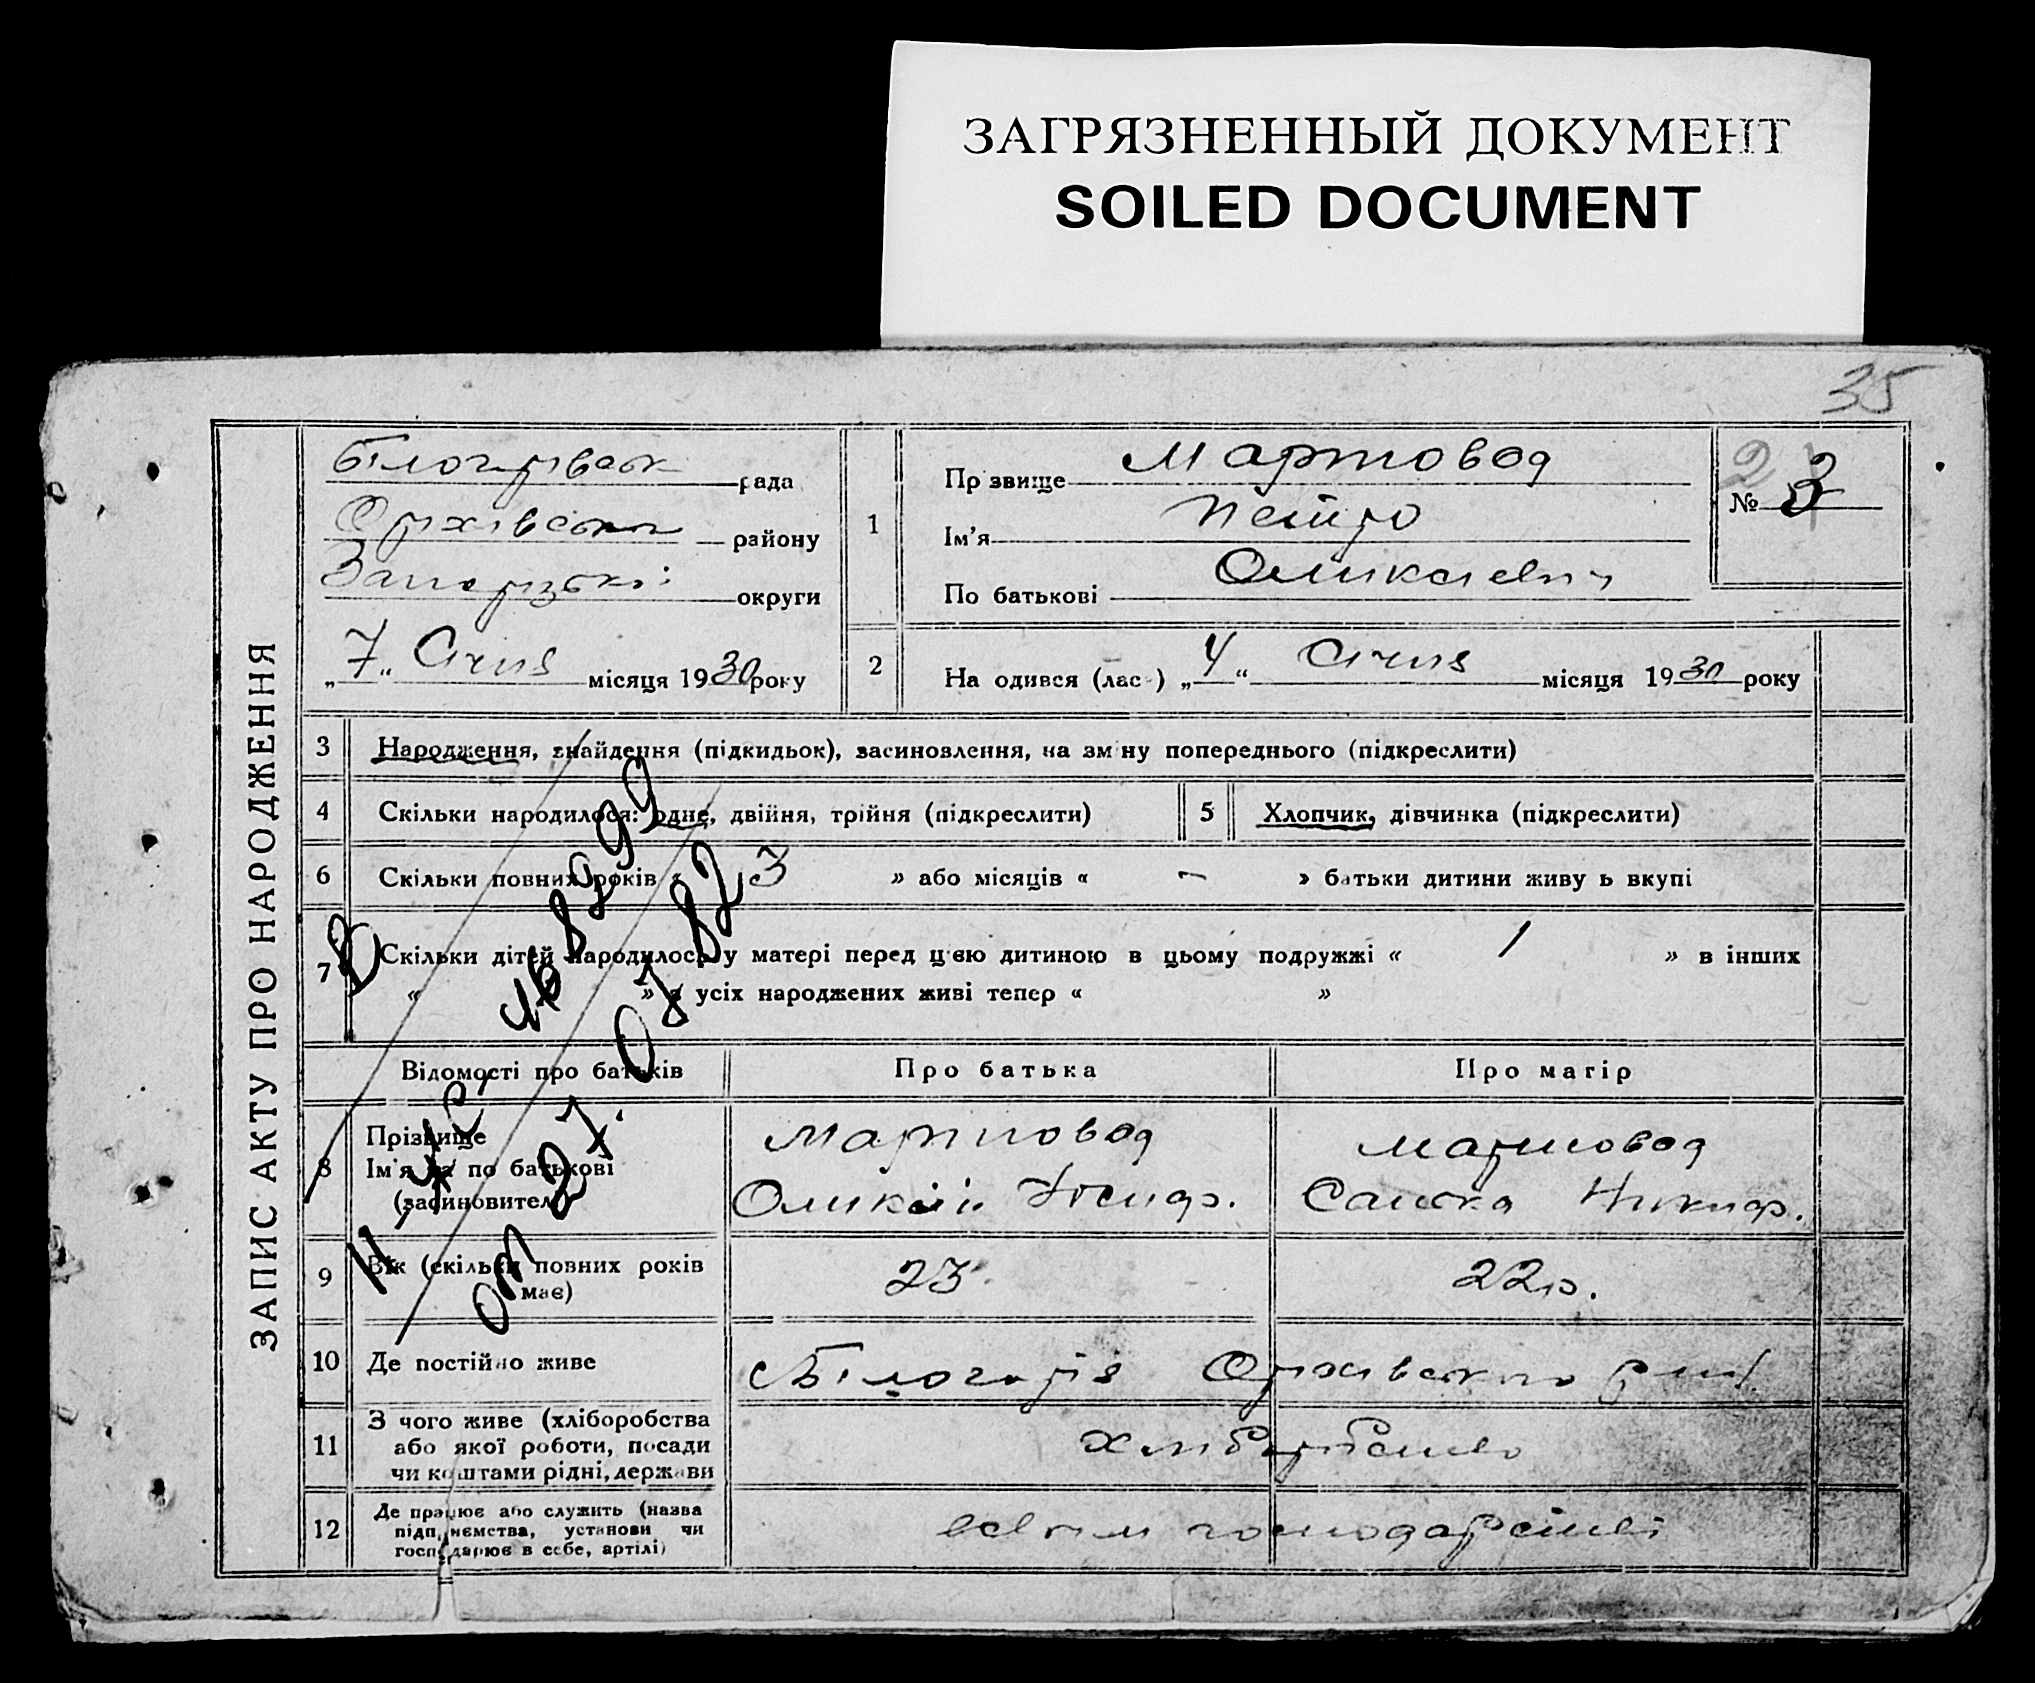 ЗАГРЯЗНЕННЫЙ ДОКУМЕНТ
SOILED DOCUMENT
35
ЗАПИС АКТУ ПРО НАРОДЖЕННЯ
рада
району
округи
„7“ Січня місяця 1930 року
1
Прзвище Мартовод
Ім'я Петро
По батькові
№ 3
2
На одився (лас ) „4“ Січня місяця 1930 року
3 Народження, знайдення (підкидьок), засиновлення, на зміну попереднього (підкреслити)
4 Скільки народилося: одне, двійня, трійня (підкреслити)
5 Хлопчик, дівчинка (підкреслити)
6 Скільки повних років « 3 » або місяців « – » батьки дитини живу ь вкупі
7 Скільки дітей народилось у матері перед цією дитиною в цьому подружжі « 1 » в інших
« » з усіх народжених живі тепер « »
Відомості про батьків
Про батька
Про матір
8 Прізвище
Ім'я та по батькові
(засиновител
Мартовод
Мартовод
Никиф.
9 Вік (скільки повних років
має)
23
22р.
10 Де постійно живе
Білогіря
11 З чого живе (хліборобства
або якої роботи, посади
чи коштами рідні, держави
хліборобство
12 Де працює або служить (назва
підприємства, установи чи
господарює в себе, артілі)
господарстві
№ 8299
от 27. 07 82